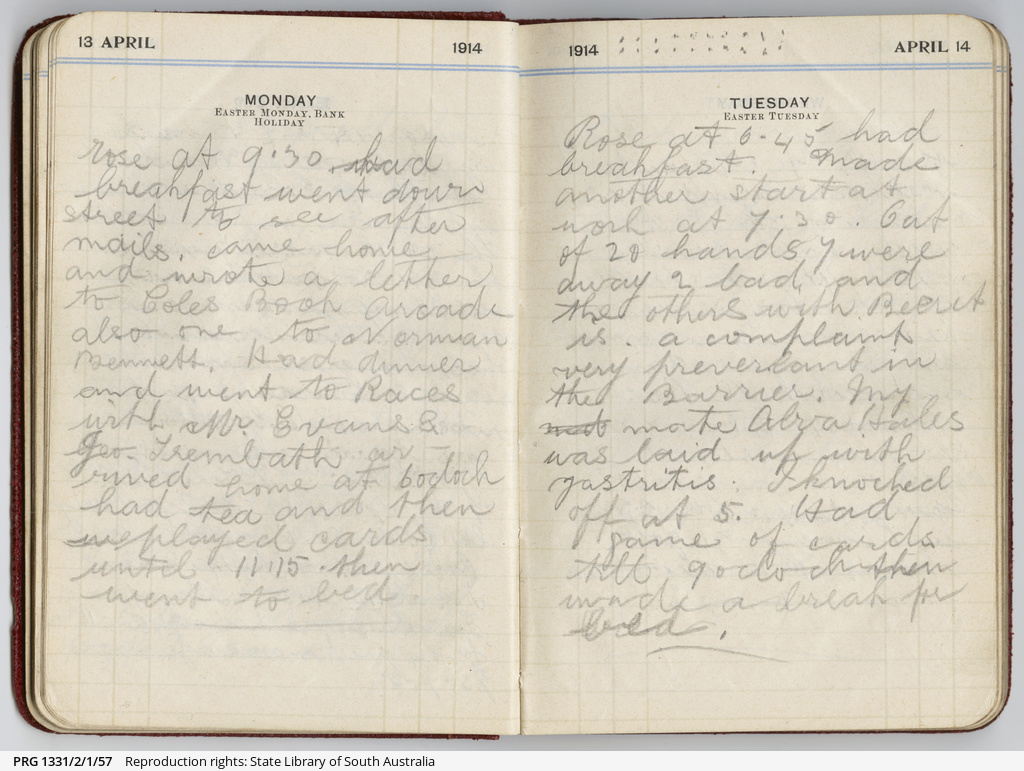 13 APRIL 1914
MONDAY
EASTER MONDAY. BANK
HOLIDAY
rose at 9.30 had
breakfast went down
street to see after
mails. came home
and wrote a letter
to Coles Book Arcade
also one to Norman
Bennett. Had dinner
and went to Races
with Mr. Evans &
Geo. Trembath ar
rived home at 6oclock
had tea and then
played cards
until 11.15. then
went to bed
1914 APRIL 14
TUESDAY
EASTER TUESDAY
Rose at 6.45 had
breakfast. made
another start at
work at 7.30. Out
of 20 hands 7 were
away 2 bad, and
the others with Beerit
is. a complaint
very preverlant in
the Barrier. My
mate Alva Hales
was laid up with
gastritis. I knocked
off at 5. Had
game of cards
till 9oclock then
made a break for
bed.
PRG 1331/2/1/57 Reproduction rights: State Library of South Australia